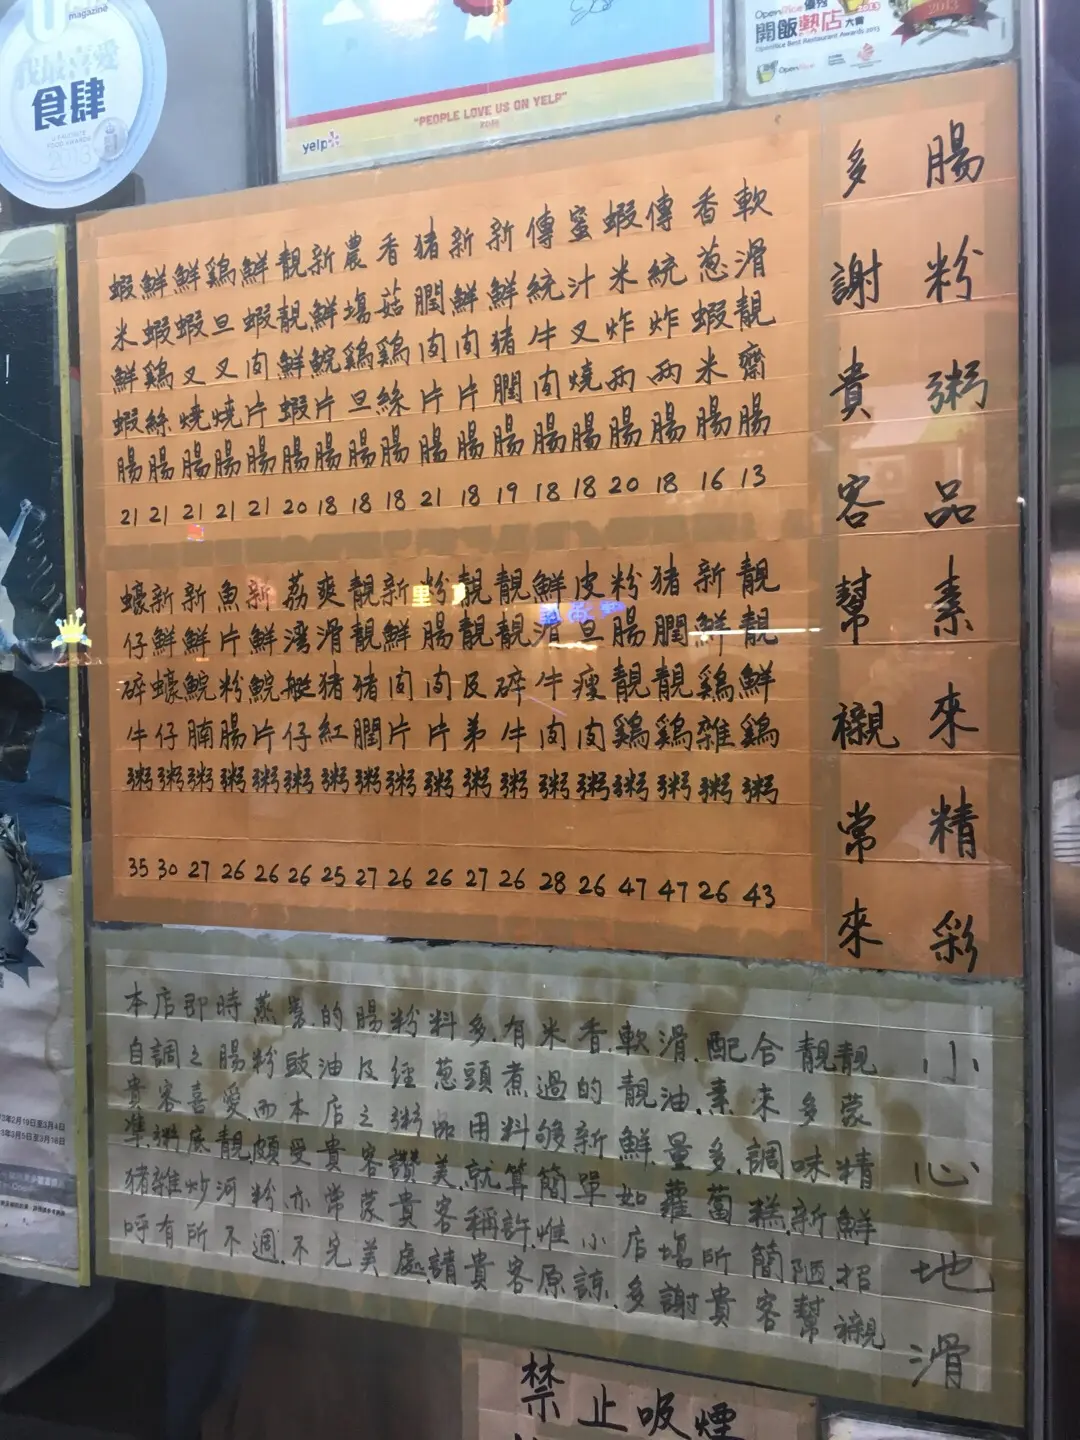 我最喜愛
食肆
magazine
2013
"PEOPLE LOVE US ON YELP"
yelp
OpenRice 優秀
開飯熱店大賞
OpenRice Best Restaurant Awards 2013
OpenRice
2013
腸粉粥品素來精彩
多謝貴客幫襯常來
軟滑靚齋腸 13
香葱蝦米腸 16
傳統炸両腸 18
蝦米炸両腸 20
蜜汁叉燒腸 18
傳統牛肉腸 18
新鮮猪膶腸 19
新鮮肉片腸 18
猪膶肉片腸 21
香菇鷄絲腸 18
農塲鷄旦腸 18
新鮮鯇片腸 18
靚靚鮮蝦腸 20
鮮蝦肉片腸 21
鷄旦叉燒腸 21
鮮蝦叉燒腸 21
鮮蝦鷄絲腸 21
蝦米鮮蝦腸 21
靚靚鮮鷄粥 43
新鮮鷄雜粥 26
猪膶靚鷄粥 47
粉腸靚鷄粥 47
皮旦瘦肉粥 26
鮮滑牛肉粥 28
靚靚碎牛粥 26
靚靚及弟粥 27
粉腸肉片粥 26
新鮮肉片粥 26
靚靚猪膶粥 27
爽滑猪紅粥 25
荔湾艇仔粥 26
新鮮鯇片粥 26
魚片粉腸粥 26
新鮮鯇腩粥 27
新鮮蠔仔粥 30
蠔仔碎牛粥 35
本店即時蒸製.的腸粉料多.有米香.軟滑.配合靚靚
自調之腸粉豉油及經葱頭煮過的靚油.素來多蒙
貴客喜愛而本店之粥品用料够新鮮.量多.調味精
準.粥底靚.頗受貴客讚美.就算簡單如蘿蔔糕.新鮮
猪雜炒河粉亦常蒙貴客稱許.惟小店塲所簡陋.招
呼有所不週.不完美處.請貴客原諒.多謝貴客幫襯
小心地滑
禁止吸煙